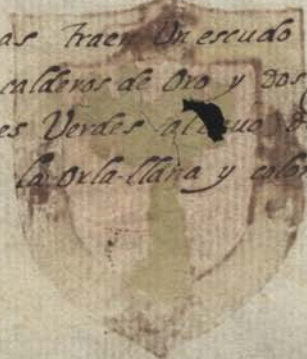 as Traen Un escudo
calderos de Oro y dos
es Verdes al
la Orla llana y color